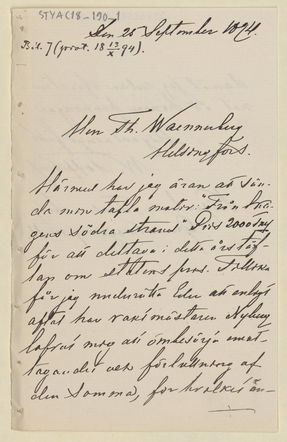 STYA(18-190-1
Den 25 September 1894.
Bil. 7 (prot. 18 13/X 94).
Herr Th. Waenerberg
Helsingfors.
Härmed har jag äran att sän-
da min tafla motiv: "Från
södra strand" Pris 2000
för att deltaga i detta års täf-
lan om statens pris. Tillika
får jag underrätta Eder att enligt
aftal har vaktmästaren Nyberg
lofvat mig att ombesörja emot-
tagandet och förtullning af
den samma, för hvilket än-